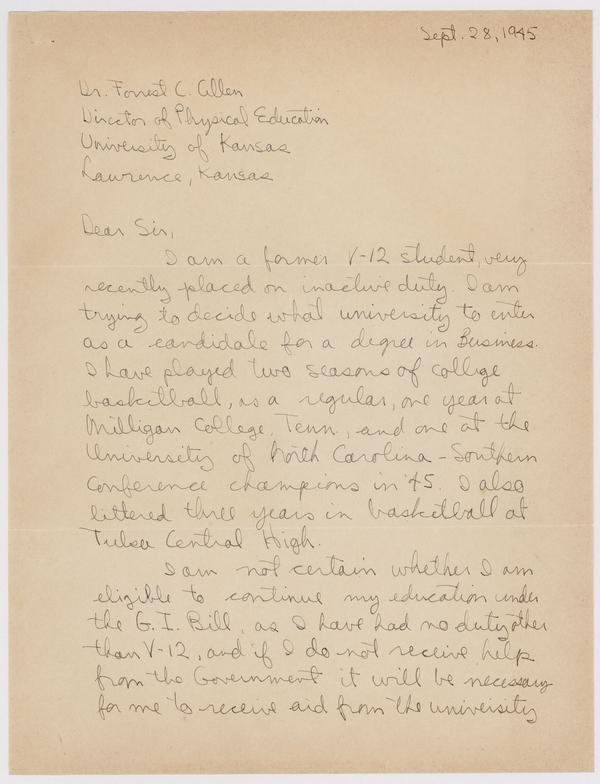 Sept. 28, 1945
Dr. Forrest C. Allen
Director of Physical Education
University of Kansas
Lawrence, Kansas
Dear Sir,
I am a former V-12 student, very
recently placed on inactive duty. I am
trying to decide what university to enter
as a candidate for a degree in Business.
I have played two seasons of college
basketball, as a regular, one year at
Milligan College, Tenn., and one at the
University of North Carolina - Southern
Conference champions in '45. I also
lettered three years in basketball at
Tulsa Central High.
I am not certain whether I am
eligible to continue my education under
the G.I. Bill, as I have had no duty other
than V-12, and if I do not receive help
from the Government it will be necessary
for me to receive aid from the university